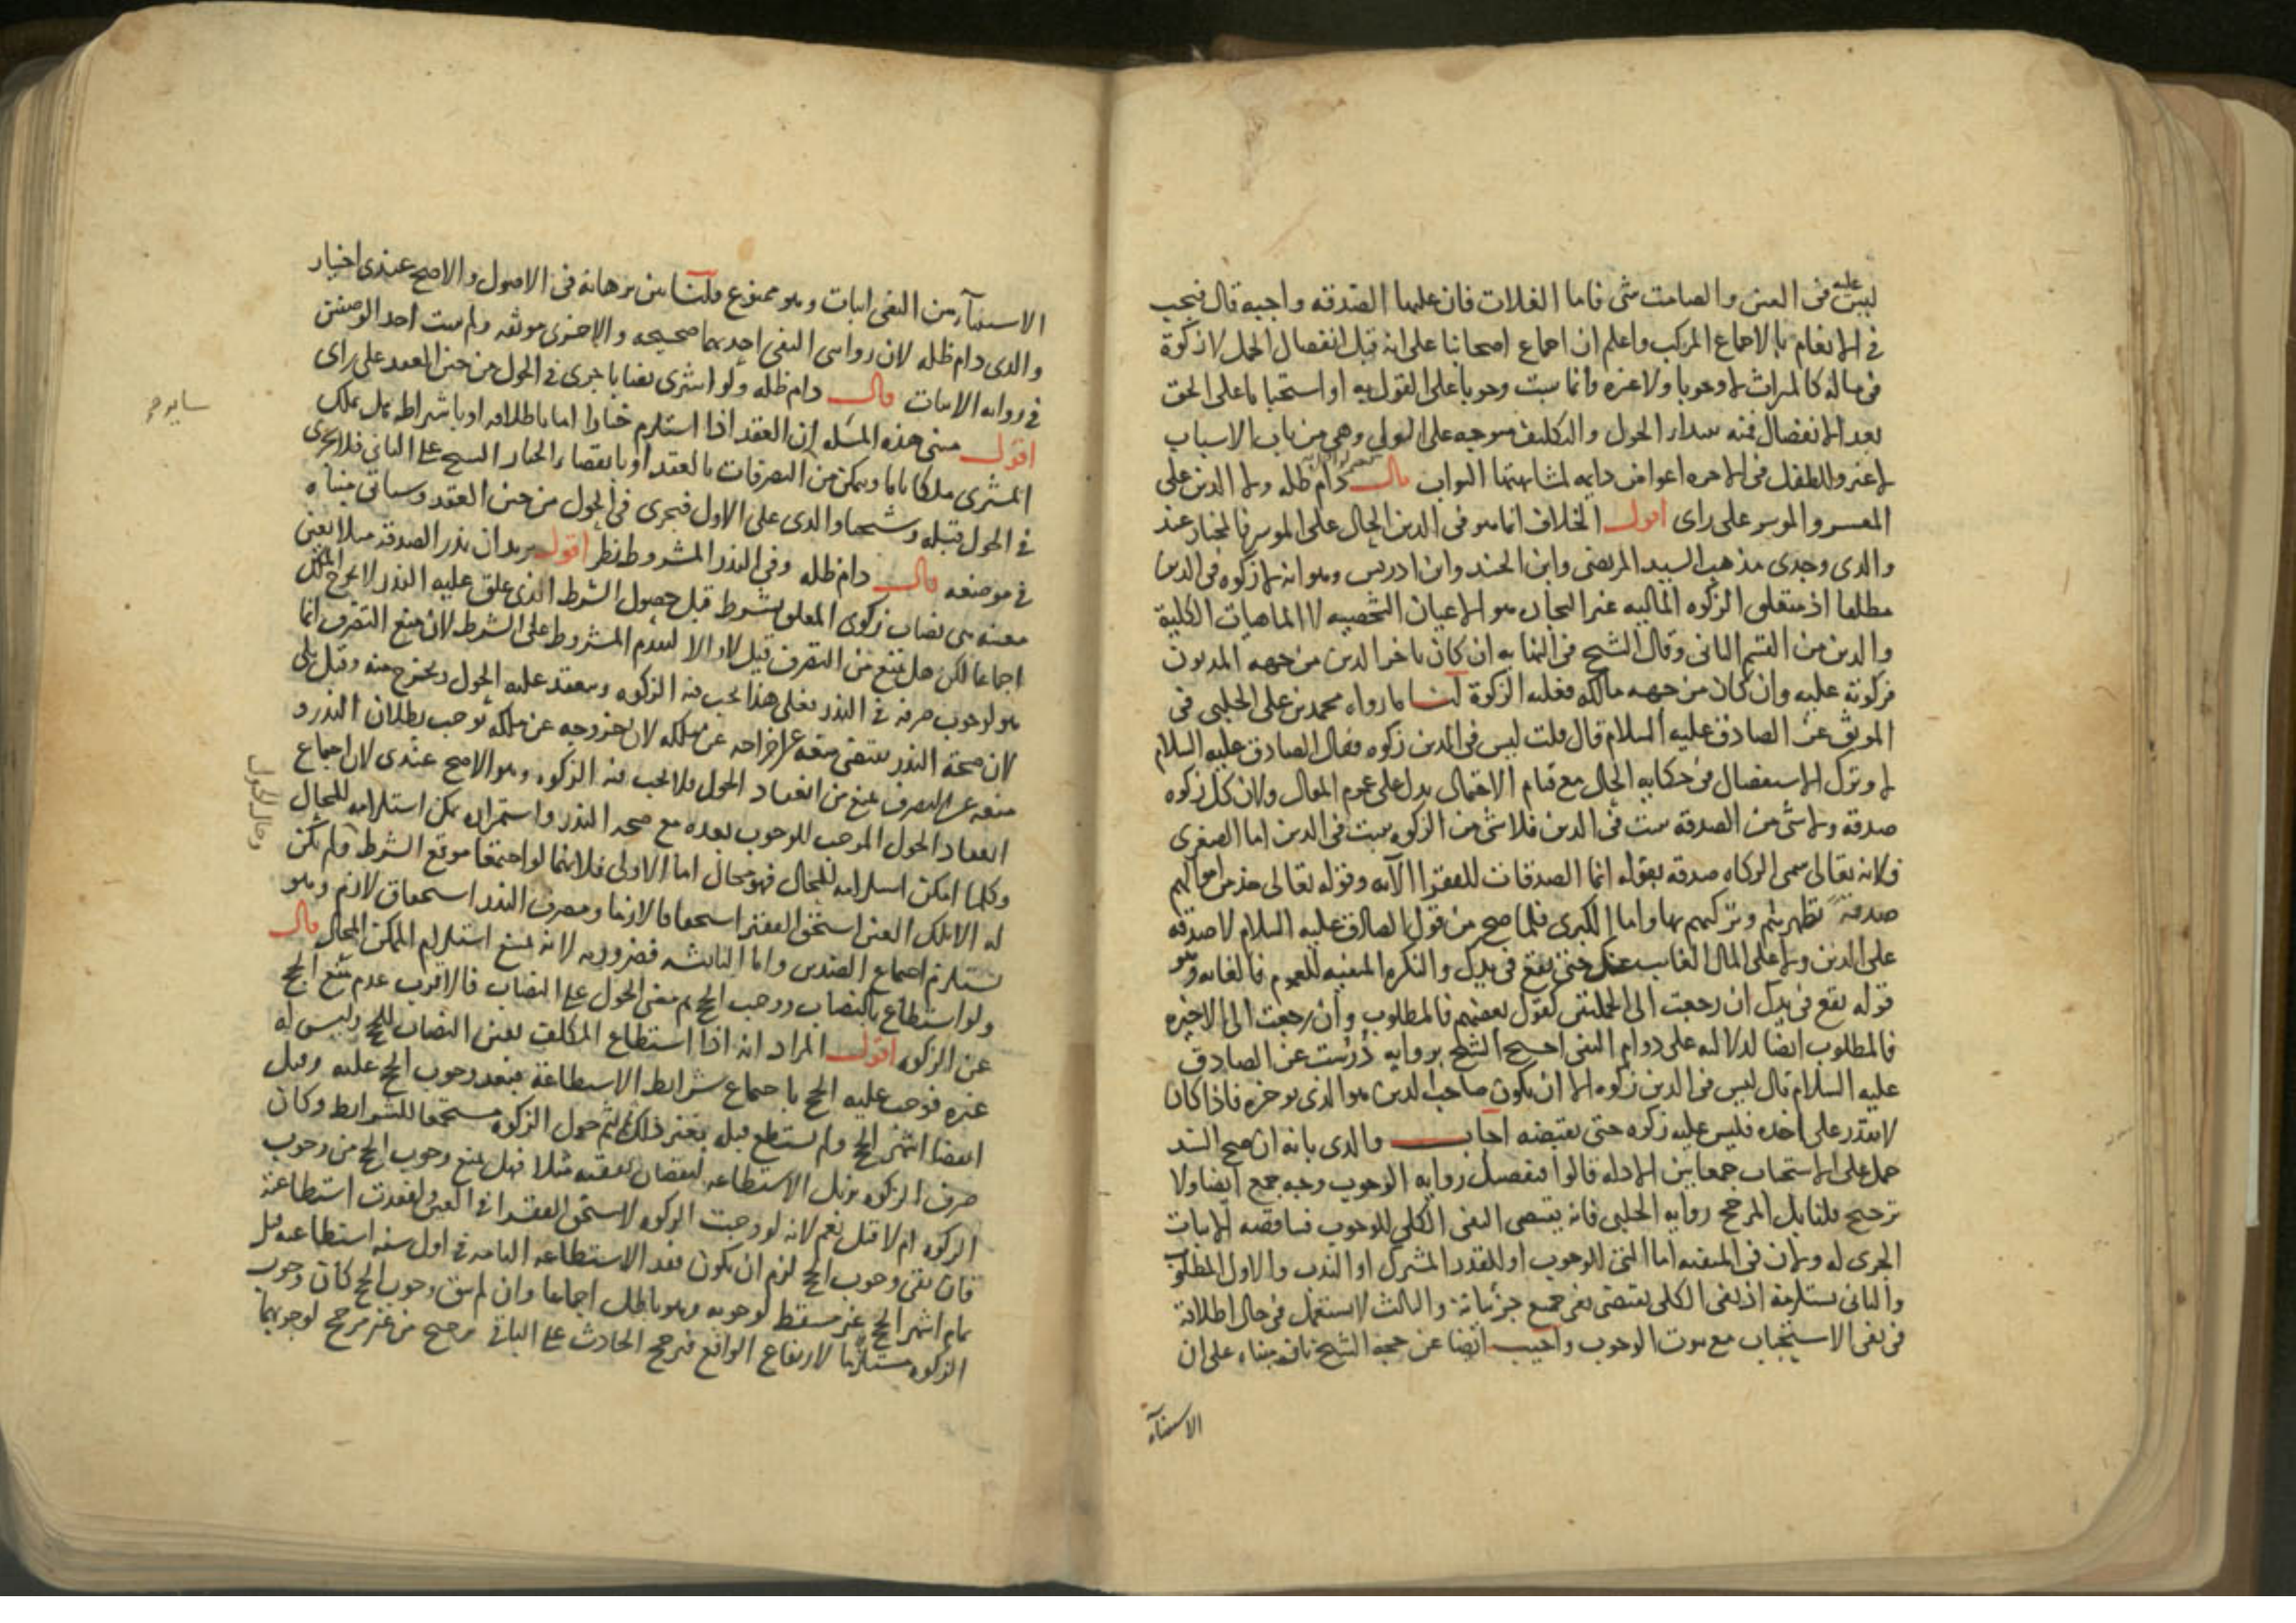 ليس عليه فى العين والصامت شى فاما الغلات فان عليها الصدقة واجبه قال فيجب
فى الانعام بالاجماع المركب واعلم ان اجماع اصحابنا على انه قبل انفصال الحمل لا زكوة
فى ماله كالميراث لا وجوبا ولا غيره وانما يثبت وجوبا على القول به او استحبابا على الحق
بعد الانفصال فمنه ابتداء الحول والتكليف متوجه على الولى وهى من باب الاسباب
لا غير وللطفل فى الاخره اعواض دايمه لمشابهتها الثواب قال دام ظله ولا الدين على
المعسر والموسر على راى اقول الخلاف انما هو فى الدين الحال على الموسر فالمختار عند
والدى وجدى مذهب السيد المرتضى وابن الجنيد وابن ادريس وهو انه لا زكوه فى الدين
مطلقا اذ متعلق الزكوه الماليه غير التجاره هو الاعيان الشخصيه لا الماهيات الكلية
والدين من القسم الثانى وقال الشيخ فى النهايه ان كان تاخر الدين من جهه المديون
فزكوته عليه وان كان من جهه مالكه فعليه الزكوة لنا ما رواه محمد بن على الحلبى فى
الموثق عن الصادق عليه السلام قال قلت ليس فى الدين زكوه فقال الصادق عليه السلام
لا وترك الاستفصال فى حكايه الحال مع قيام الاحتمال يدل على عموم المقال ولان كل زكوه
صدقة ولا شى من الصدقة يثبت فى الدين فلا شى من الزكوه يثبت فى الدين اما الصغرى
فلانه تعالى سمى الزكاه صدقه بقوله انما الصدقات للفقرا الآيه وقوله تعالى خذ من اموالهم
صدقة تطهرهم وتزكيهم بها واما الكبرى فلما صح من قول الصادق عليه السلام لا صدقه
على الدين ولا على المال الغايب عنك حتى يقع فى يدك والنكره المنفيه للعموم فالغايه وهو
قوله يقع فى يدك ان رجعت الى الجملتين كقول بعضهم فالمطلوب وان رجعت الى الاخيره
فالمطلوب ايضا لدلالته على دوام النفى احتج الشيخ بروايه درست عن الصادق
عليه السلام قال ليس فى الدين زكوه الا ان يكون صاحب الدين هو الذى يوخره فاذا كان
لا يقدر على اخذه فليس عليه زكوه حتى يقبضه اجاب والدى بانه ان صح السند
حمل على الاستحباب جمعا بين الادله قالوا فتفصيل روايه الوجوب وجه جمع ايضا ولا
ترجيح قلنا بل المرجح روايه الحلبى فانه يقتضى النفى الكلى للوجوب فيناقضه الاثبات
الجزى له ولان فى المنفيه اما النفى للوجوب او للقدر المشترك او الندب والاول المطلوب
والثانى يستلزمه اذ نفى الكلى يقتضى نفى جميع جزئياته والثالث لا يستعمل فى حال اطلاقه
فى نفى الاستحباب مع ثبوت الوجوب واجيب ايضا عن حجه الشيخ بانه بناء على ان
الاستثنآء
الاستثنآء من النفى اثبات وهو ممنوع قلنا بين برهانه فى الاصول والاصح عندى اختيار
والدى دام ظله لان روايتى النفى احديهما صحيحه والاخرى موثقه ولم يثبت احد الوصفين
فى روايه الاثبات قال دام ظله ولو اشترى نصابا جرى فى الحول من حين العقد على راى
اقول مبنى هذه المسئله ان العقد اذا استلزم خيارا اما باطلاقه او باشتراطه هل يملك
المشترى ملكا تاما ويمكن من التصرفات بالعقد او بانقضاء الخيار الشيخ على الثانى فلا يجرى
فى الحول قبله وشيخنا والدى على الاول فيجرى فى الحول من حين العقد وسياتى مبناه
فى موضعه قال دام ظله وفى النذر المشروط نظر اقول يريد ان نذر الصدقه مثلا بعين
معينه من نصاب زكوى المعلق بشرط قبل حصول الشرط الذى علق عليه النذر لا يخرج الملك
اجماعا لكن هل يمنع من التصرف قيل لا والا لتقدم المشروط على الشرط لان منع التصرف انما
هو لوجوب صرفه فى النذر فعلى هذا تجب فيه الزكوه وينعقد عليه الحول ويخرج منه وقيل بلى
لان صحة النذر يقتضى منعه عن اخراجه عن ملكه لان خروجه عن ملكه يوجب بطلان النذر و
منعه عن التصرف يمنع من انعقاد الحول فلا تجب فيه الزكوه وهو الاصح عندى لان اجماع
انعقاد الحول الموجب للوجوب بعده مع صحه النذر واستمراره يمكن استلزامه للمحال
وكلما امكن استلزامه للمحال فهو محال اما الاولى فلانهما لو اجتمعا موقع الشرط ولم يكن
له الا تلك العين استحق الفقير استحقاقا لازما ومصرف النذر استحقاق لازم وهو
يستلزم اجتماع الضدين واما الثانيه فضروريه لانه يمتنع استلزام الممكن المحال قال
ولو استطاع بالنصاب ووجب الحج ثم مضى الحول على النصاب فالاقرب عدم منع الحج
عن الزكوه اقول المراد انه اذا استطاع المكلف بعين النصاب للحج وليس له
غيره فوجب عليه الحج باجتماع شرايط الاستطاعة فبعد وجوب الحج عليه وقبل
انقضا اشهر الحج ولم يستطع قبله بغير ذلك تم حول الزكوه مستجمعا للشرايط وكان
صرف الزكوه يزيل الاستطاعه لنقصان نفقته مثلا فهل يمنع وجوب الحج من وجوب
الزكوه ام لا قيل نعم لانه لو وجبت الزكوه لاستحق الفقرا فى العين ولفقدت استطاعة
فان بقى وجوب الحج لزم ان يكون فقد الاستطاعه التامه فى اول سنه استطاعته قبل
تمام اشهر الحج غير مسقط لوجوبه وهو باطل اجماعا وان لم يبق وجوب الحج كان وجوب
الزكوه مستلزما لارتفاع الواقع فترجح الحادث على الباقى ترجيح من غير مرجح لوجوبهما